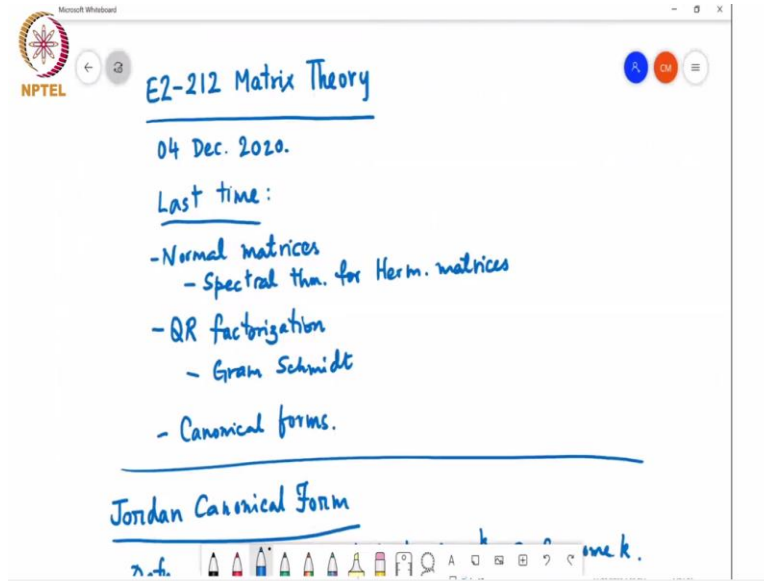 Microsoft Whiteboard
NPTEL
CM
E2-212 Matrix Theory
04 Dec. 2020.
Last time:
- Normal matrices
- Spectral thm. for Herm. matrices
- QR factorization
- Gram Schmidt
- Canonical forms.
Jordan Canonical Form
ome k.